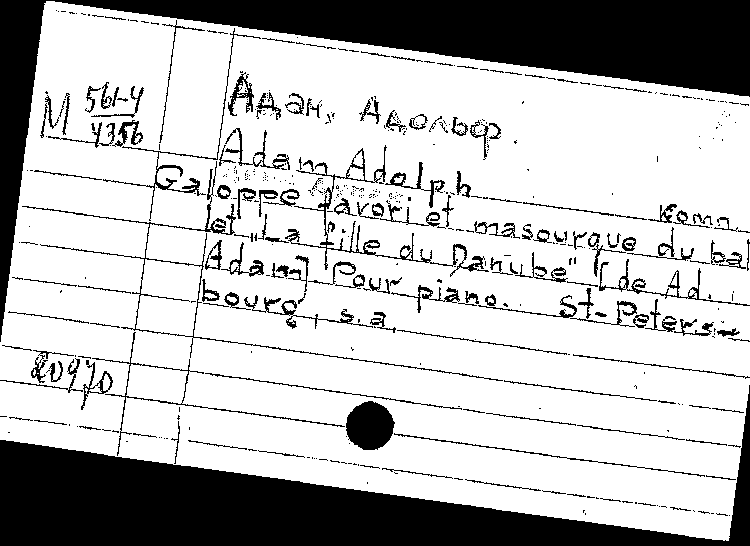 М 561-4
4356
Адан, Адольф.
Adam, Adolph
комп.
Galoppe favori et masourque du bal
let „La fille du Danube" [de Ad.
Adam]. Pour piano. St-Peters-
bourg, s.a.
20970